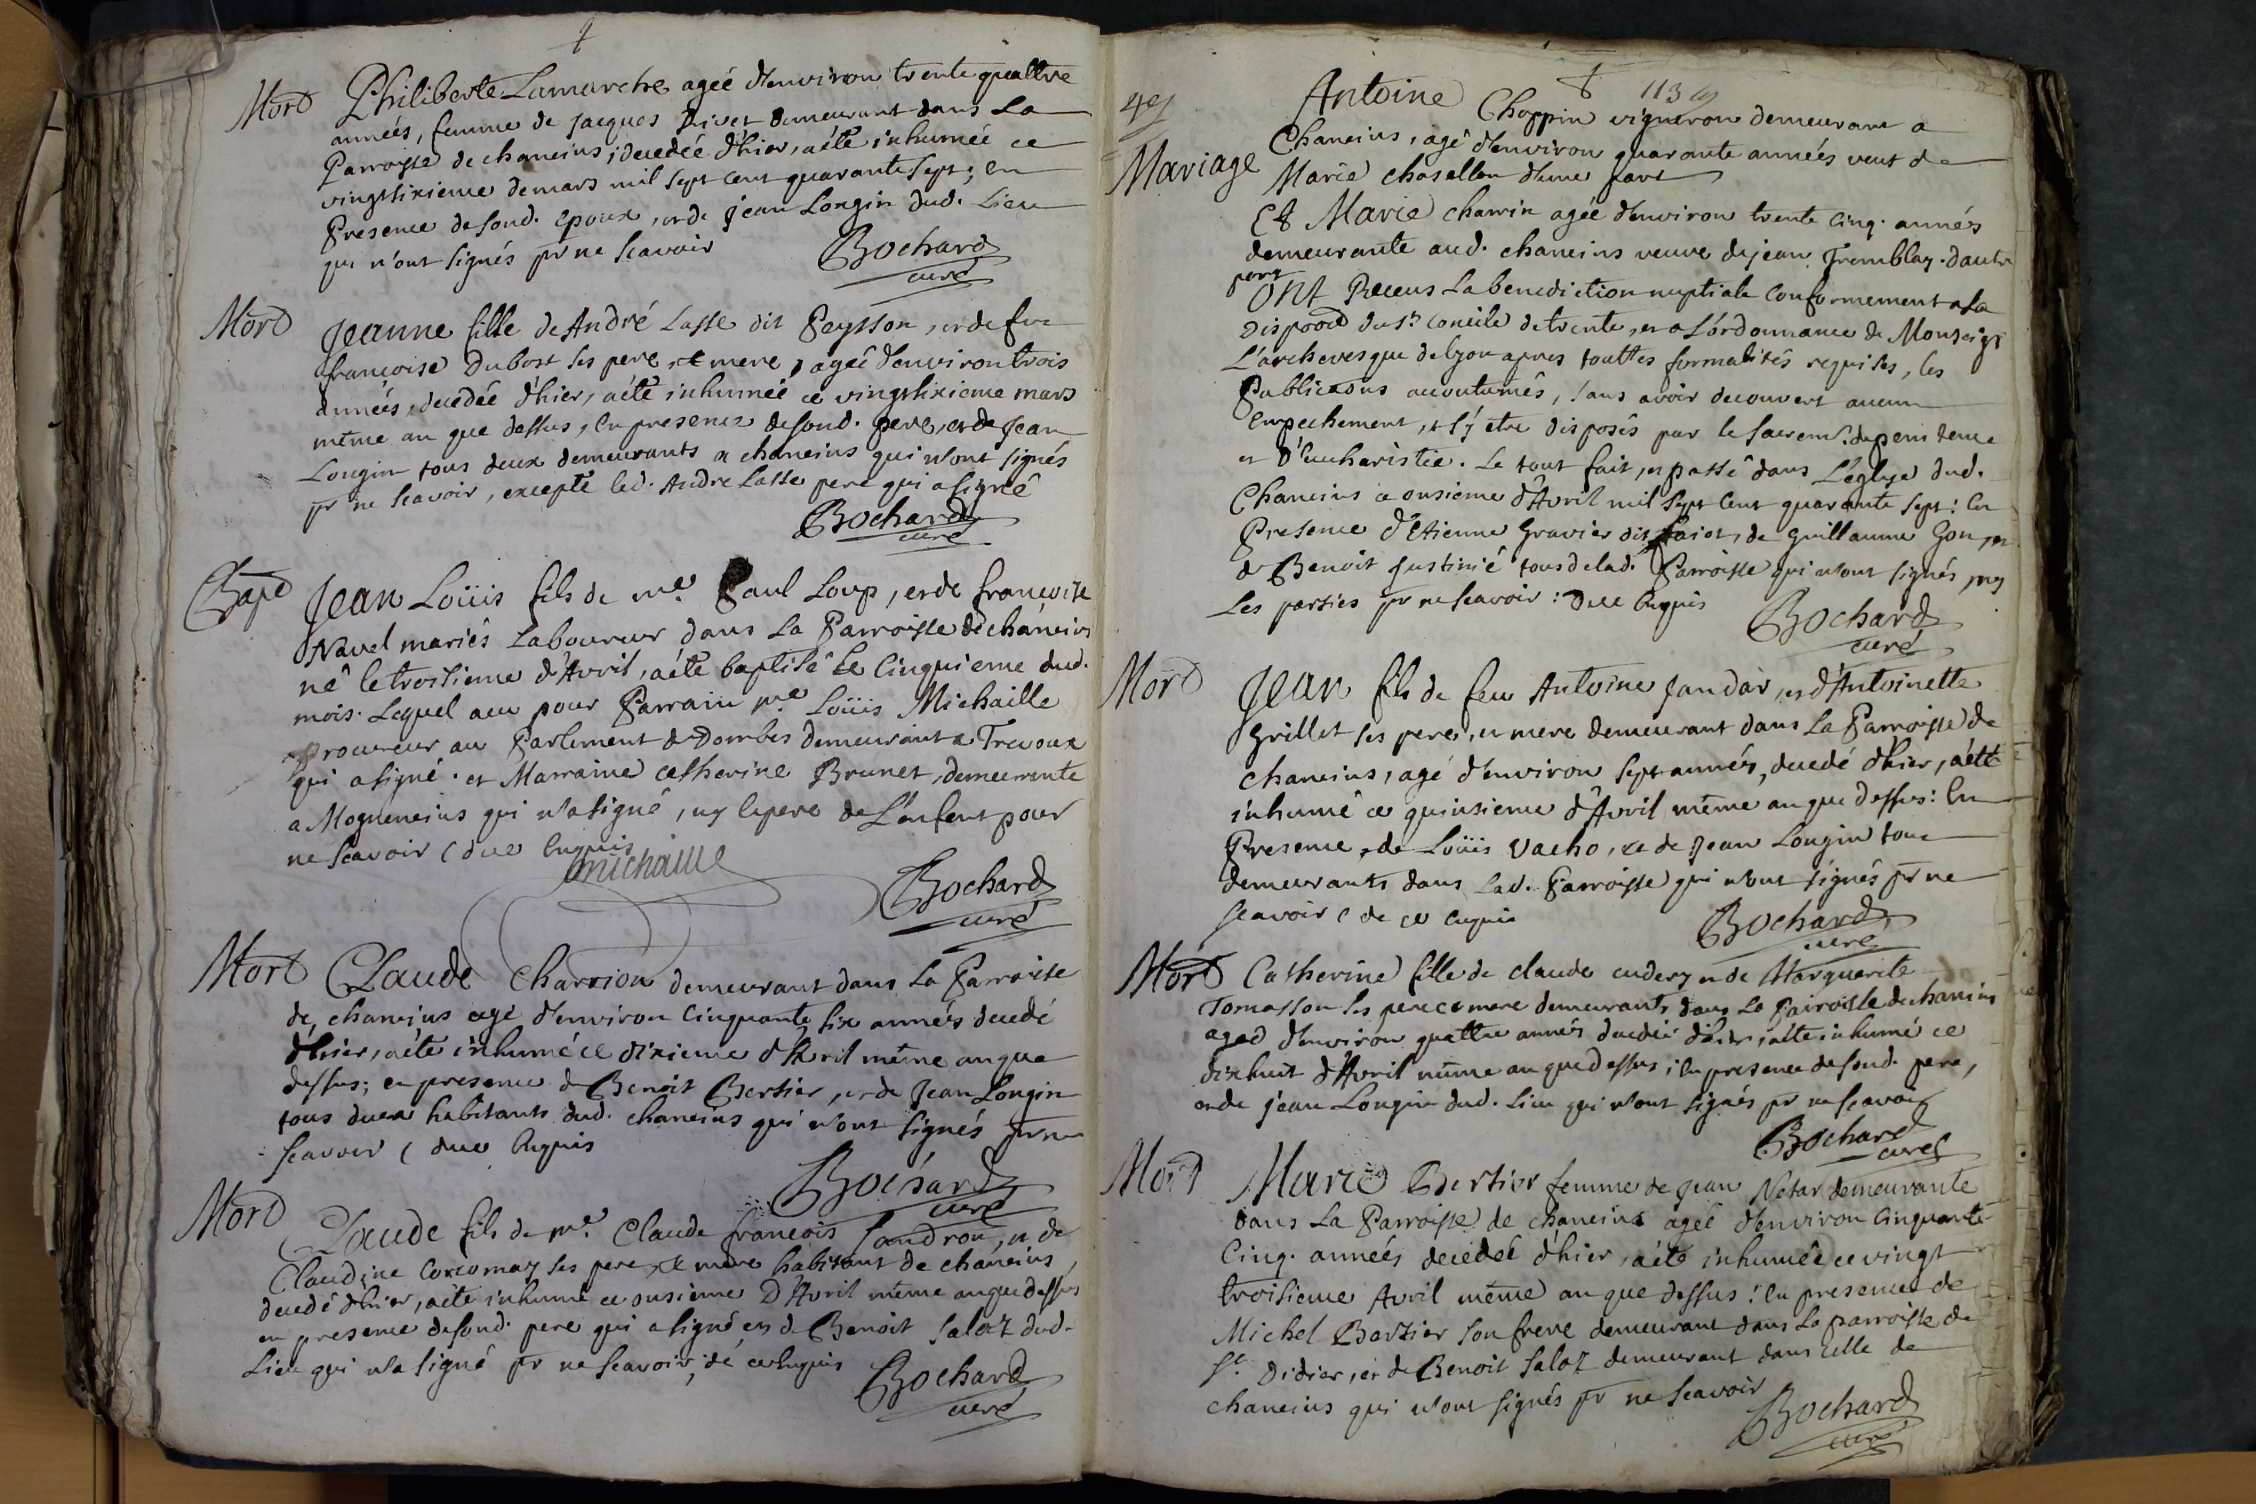 Mort Philiberte Lamarche agée d'environ trente quattre
années, femme de Jacques Rivet demeurant dans La
Parroisse de chaneins, decedée d'hier, a été inhumée ce
vingtsixieme de mars mil sept cent quarante sept; en
Presence de sond. Epoux, et de Jean Longin dud. Lieu
qui n'ont signés pr ne scavoir
Bochard
curé
Mort Jeanne fille de André Lasse dit Peysson, et de fue
francoise Dubost ses pere et mere, agée d'environ trois
années, decedée d'hier, a été inhumée ce vingtsixieme mars
même an que dessus, en presence de sond. pere, et de Jean
Longin tous deux demeurants a chaneins qui n'ont signés
pr ne scavoir, excepté led. André Lasse pere qui a signé
Bochard
curé
Bapt Jean Loüis fils de me. Paul Loup, et de francoise
Navel mariés Laboureur dans La Parroisse de chaneins
né le troisieme d'Avril, a été baptisé Le Cinquieme dud.
mois. Lequel a eu pour Parrain me Loüis Michaille
procureur au Parlement de Dombes demeurant a Trevoux
qui a signé. et Marraine catherine Brunet, demeurante
a Mogneneins qui n'a signé, ny le pere de L'enfent pour
ne scavoir (duee enquis
Michaille
Bochard
curé
Mort Claude Charrion demeurant dans La Parroisse
de chaneins agé d'environ Cinquante six années decedé
d'hier, a été inhumé ce dixieme d'Avril même an que
dessus; en presence de Benoit Bertier, et de Jean Longin
tous deux habitants dud. chaneins qui n'ont signés pr ne
scavoir (duee enquis
Bochard
curé
Mort Claude fils de me. Claude francois Sandron, et de
Claudine ses pere et mere habitant de chaneins,
decedé d'hier, a été inhumé ce onsieme D'Avril même an que dessus
en presence de sond. pere qui a signé et de Benoit Salaz dud.
Lieu qui n'a signé pr ne scavoir, de ce enquis
Bochard
curé
113
49
Mariage
Antoine Choppin vigneron demeurant a
Chaneins, agé d'environ quarante années veuf de
Marie chasellon d'une part
Et Marie charrin agée d'environ trente Cinq. années
demeurante aud. chaneins veuve de jean Tremblay. d'autre
part
Ont Receus La benediction nuptiale Conformement a La
Disposõn du st Concile de trente, et a L'ordonnance de Monseigr
L'archevesque de Lyon apres touttes formalités requises, les
Publicãons acoutumés, sans avoir decouvert aucun
Empechement, et s'y etre disposés par le sacremt. de penitence
et d'Eucharistie. Le tout fait, et passé dans L'eglise dud.
Chaneins ce onsieme d'Avril mil sept cent quarante sept: En
Presence d'Etienne Gravier dit, de Guillaume Gon, et
de Benoit Justinié tous de lad. Parroisse qui n'ont signés, ny
Les parties pr ne scavoir: duee enquis
Bochard
curé
Mort Jean fils de feu Antoine Jandar, et d'Antoinette
Grillet ses pere, et mere demeurant dans La Parroisse de
chaneins, agé d'environ sept années, decedé d'hier, a été
inhumé ce quinsieme d'Avril même an que dessus: En
Presence, de Loüis Vacho, et de Jean Longin tous
demeurants dans Lad. Parroisse qui n'ont signés pr ne
scavoir (de ce enquis
Bochard
curé
Mort Catherine fille de claude et de Marguerite
Tomasson ses pere et mere demeurants dans La Parroisse de chaneins
aged d'environ quattre années decedée d'hier, a été inhumé ce
dixhuit d'Avril même an que dessus; en presence de sond. pere,
et de jean Longin dud. lieu qui n'ont signés pr ne scavoir
Bochard
curé
Mort Marie Bertier femme de Jean Netar demeurante
dans La Parroisse de chaneins agée d'environ cinquante
Cinq. années decedée d'hier, a été inhumée ce vingt
troisieme Avril même an que dessus: En presence de
Michel Bartier son frere demeurant dans La parroisse de
St. Didier, et de Benoit Salaz demeurant dans celle de
chaneins qui n'ont signés pr ne scavoir
Bochard
curé